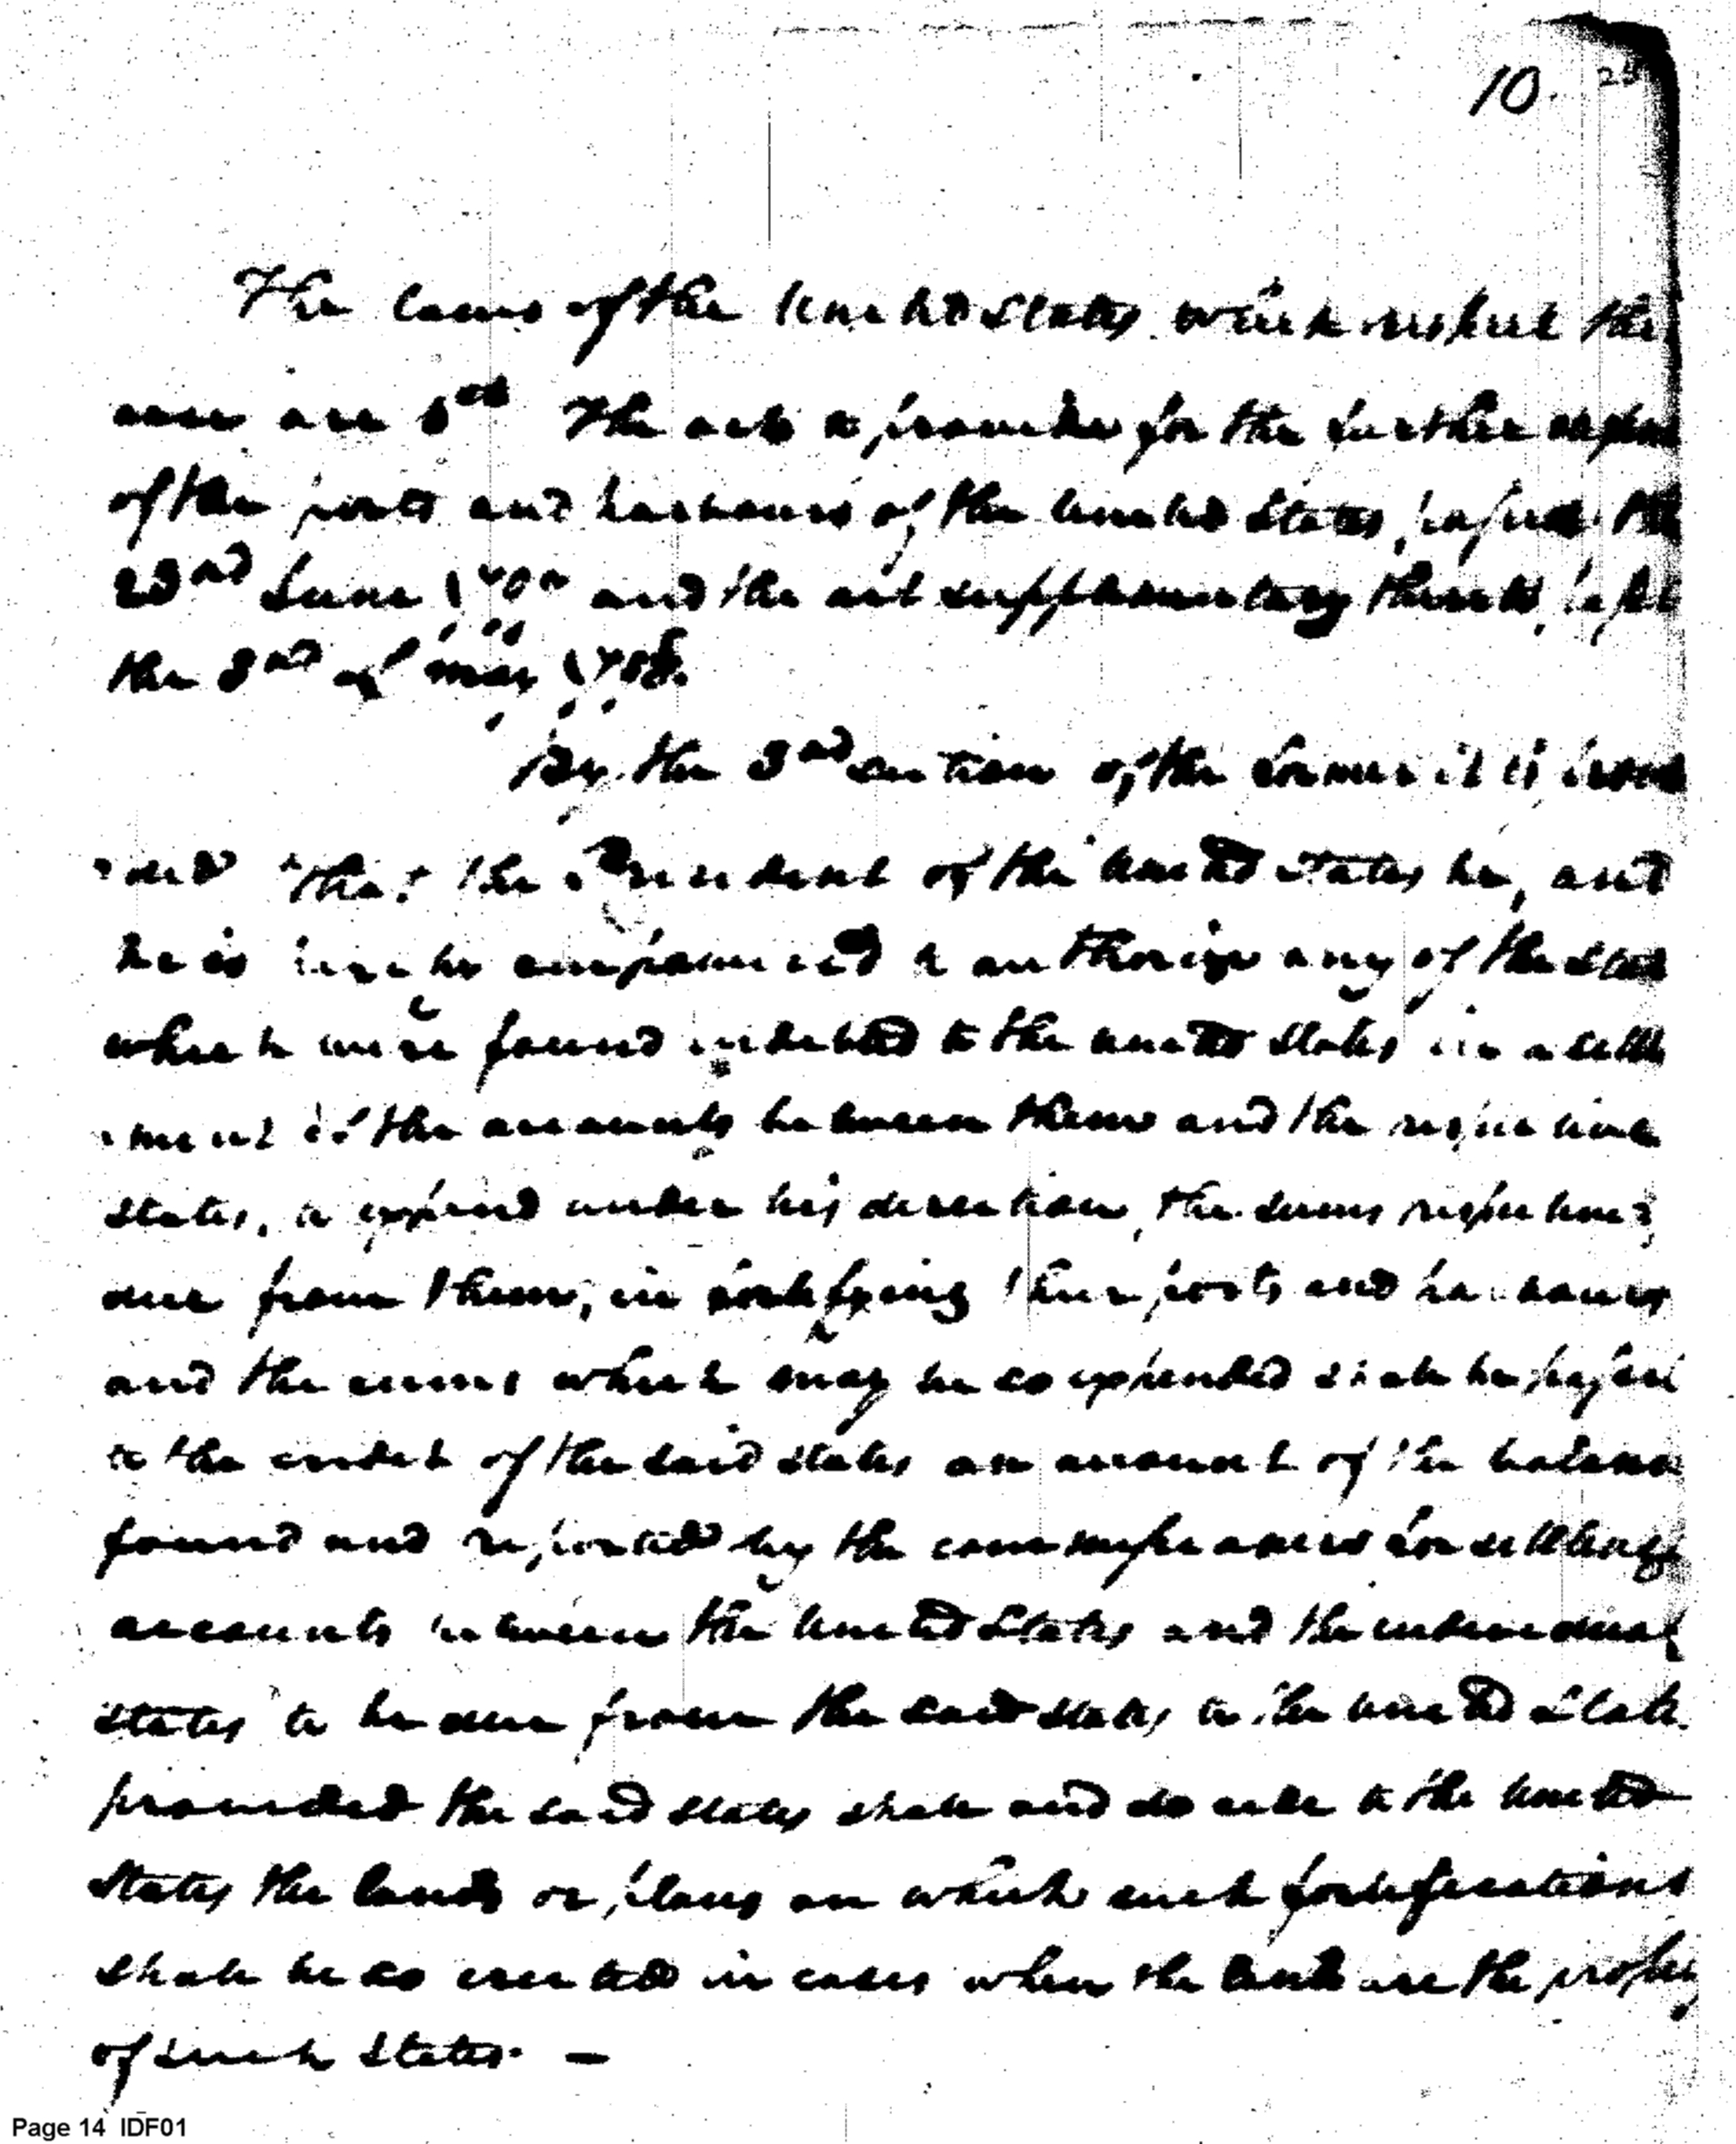 10.
The laws of the United States which respect the
case are 1st The act to provide for the further defence
of the ports and harbours of the United States, passed the
23rd June and the act supplementary thereto, passed
the 3rd of May 1798.
By the 3rd section of the former it is provi
ded "that the President of the United States be, and
he is hereby empowered to authorize any of the States
which were found indebted to the United States in a settle
ment of the accounts between them and the respective
States, to expend under his direction, the sums respectively
due from them, in fortifying their ports and harbours
and the sums which may be so expended shall be passed
to the credit of the said States on account of the balances
found and reported by the commissioners for settling
accounts between the United States and the individual
States to be due from the said States to the United States.
provided the said States shall and do cede to the United
States the lands or places on which such fortifications
shall be so erected in cases when the lands are the property
of such States. —
Page 14 IDF01